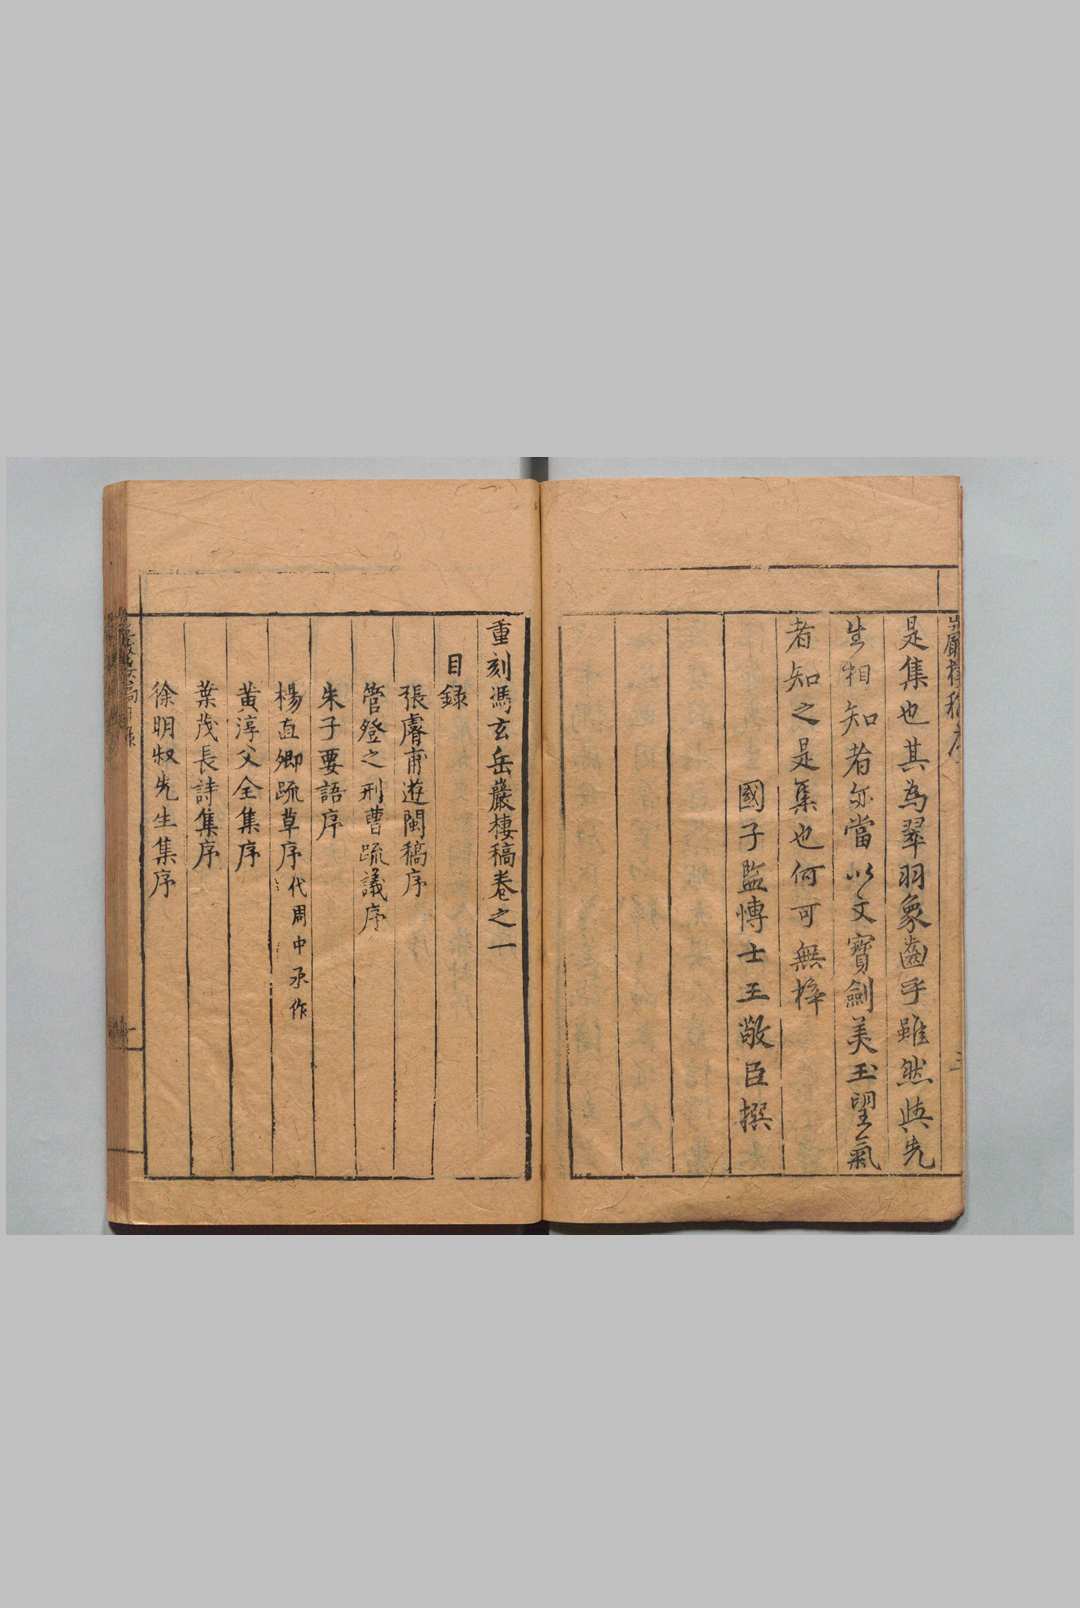 是集也其為翠羽象齒乎雖然與先
生相知者亦當以文寶劍美玉望氣
者知之是集也何可無梓
國子監愽士王敬臣撰
重刻馮玄岳巖棲稿卷之一
目錄
張膚甫遊閩稿序
管登之刑曹疏議序
朱子要語序
楊直卿疏草序代周中丞作
黃淳父全集序
葉茂長詩集序
徐明叔先生集序